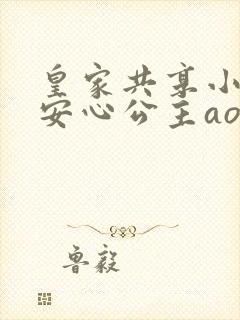 皇家共享小
安心公主ao
鲁毅